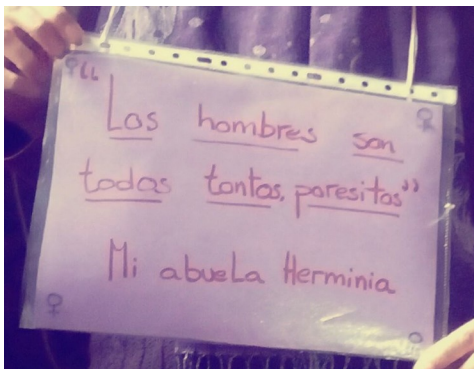 “Los hombres son
todos tontos, paresitos”
Mi abuela Herminia